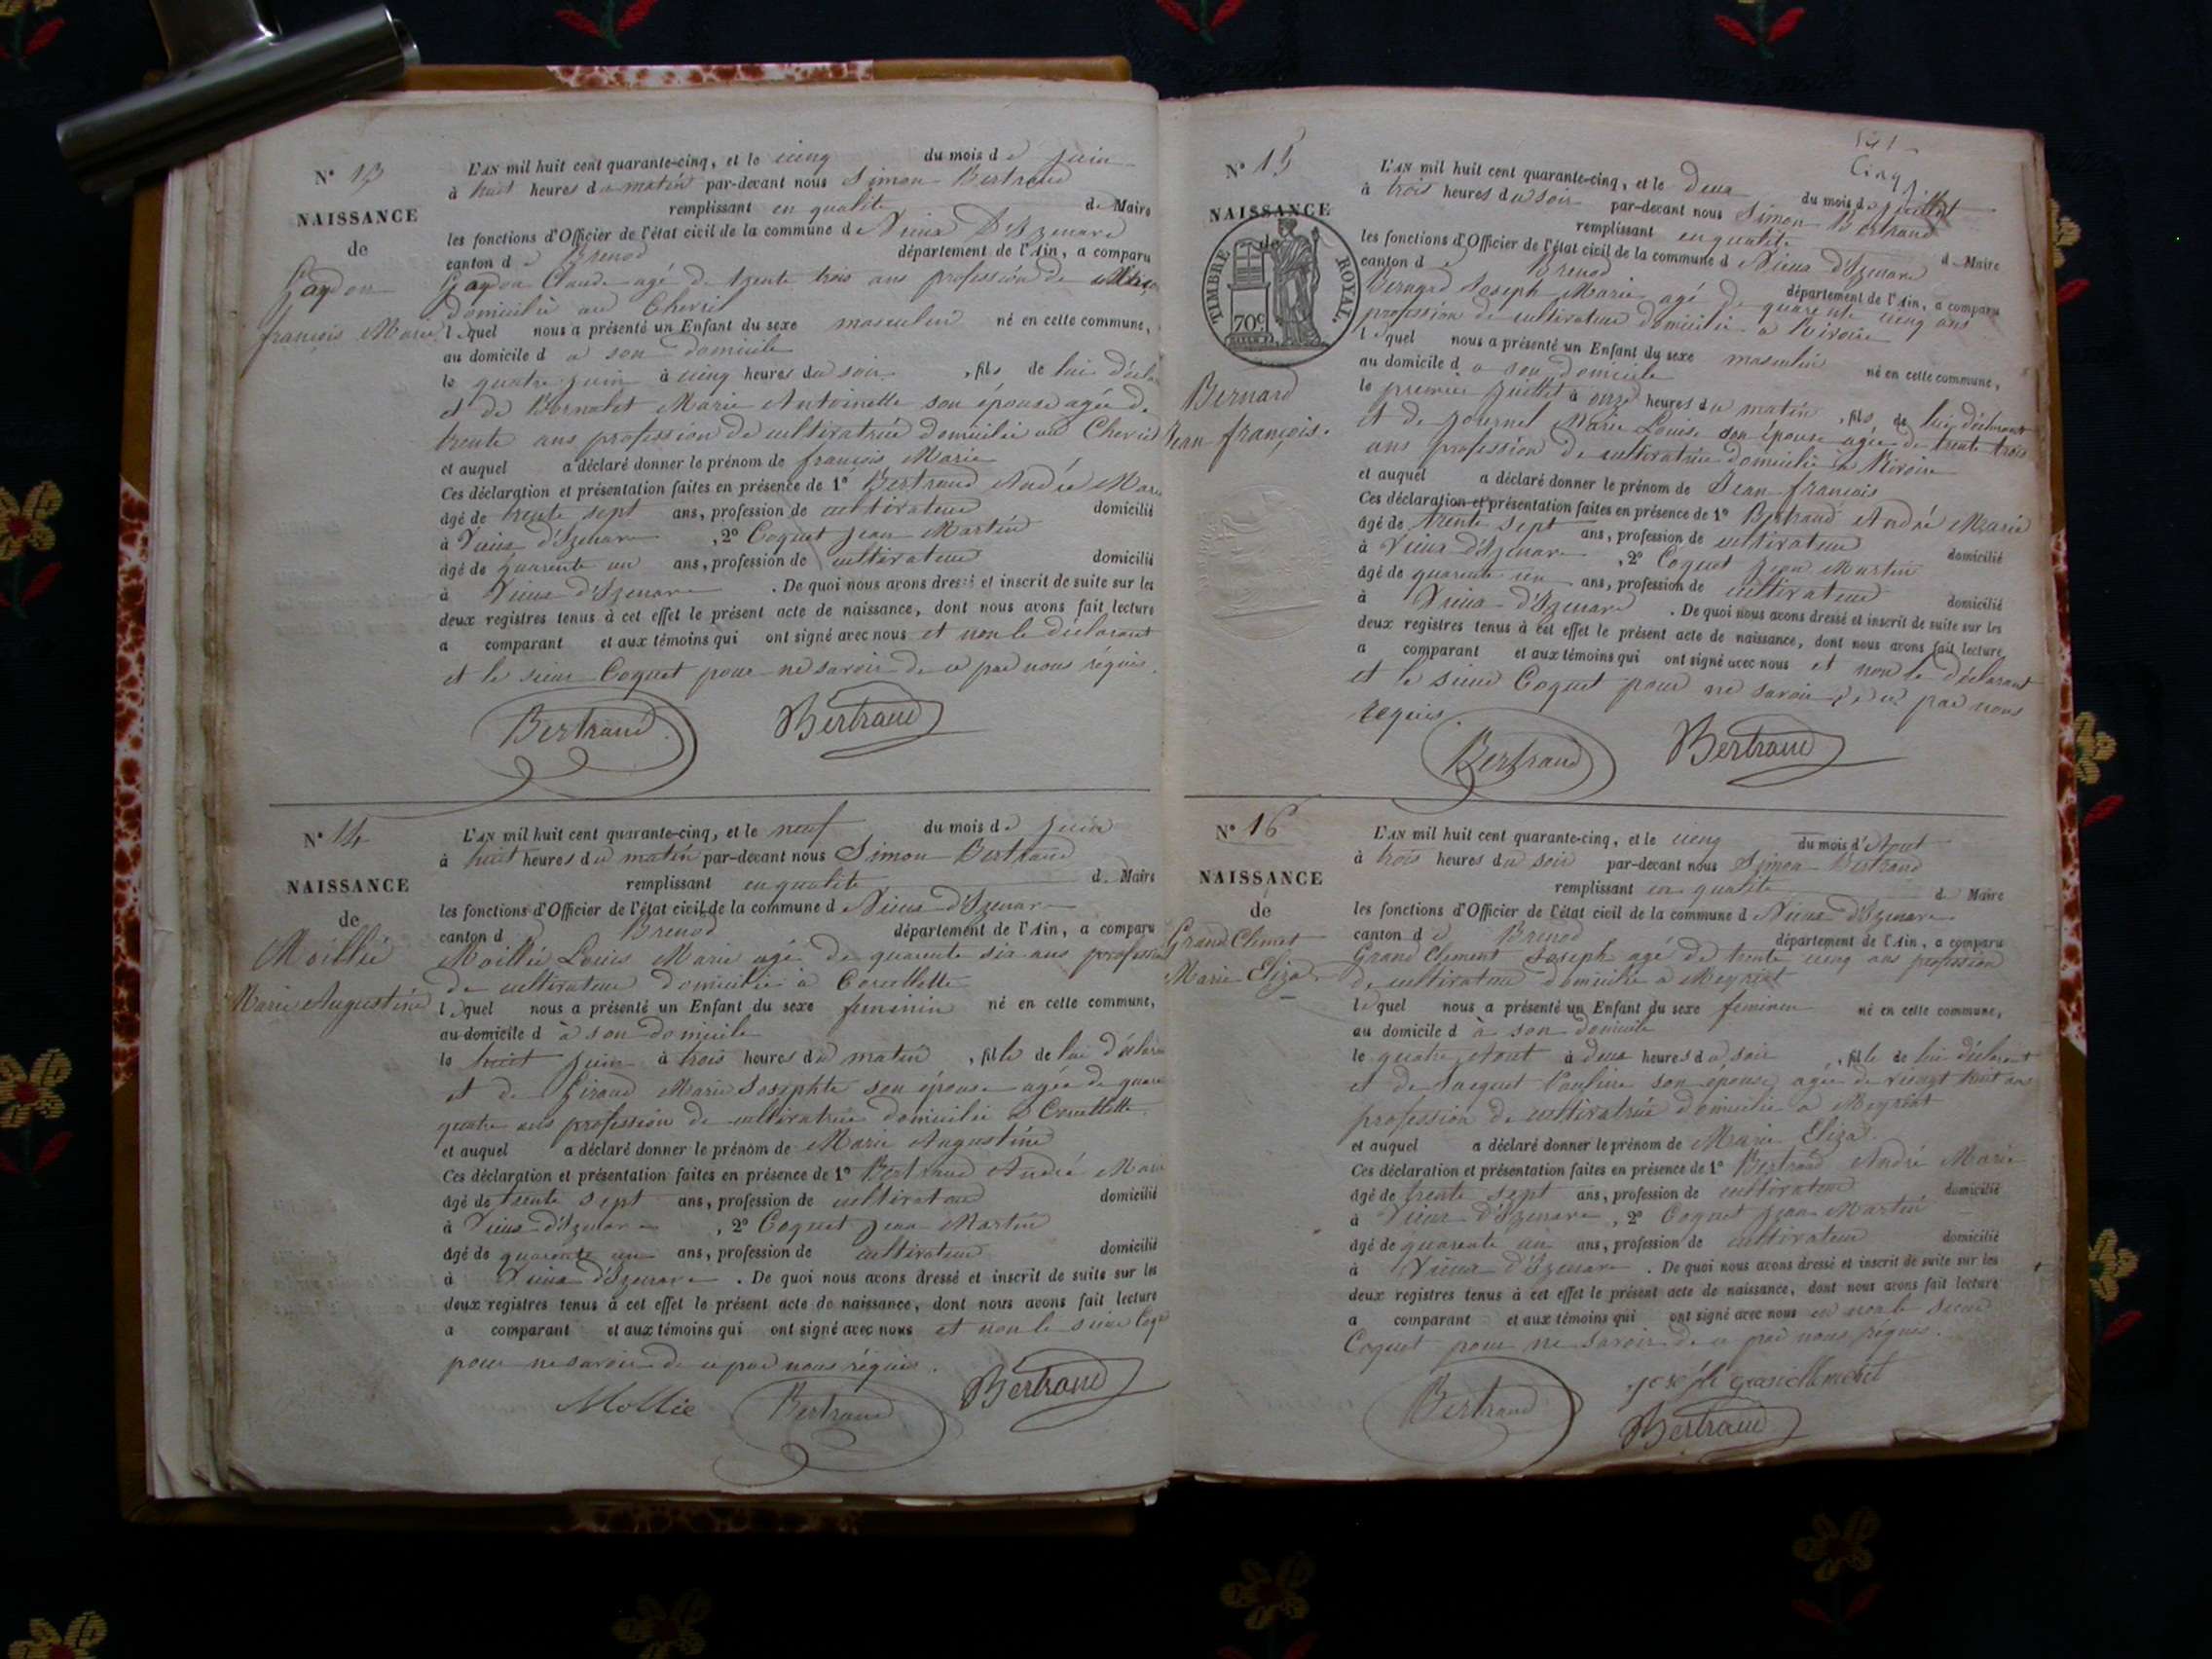 N° 13
NAISSANCE
de
Gaydon
françois Marie
L'AN mil huit cent quarante-cinq, et le cinq du mois de juin
à huit heures du matin par-devant nous Simon Bertrand
remplissant en qualité de Maire
les fonctions d'Officier de l'état civil de la commune de Vieux D'Izenave
canton de Brenod département de l'Ain, a comparu
Gaydon Claude agé de trente trois ans profession de
domicilié au Chevril
lequel nous a présenté un Enfant du sexe masculin né en cette commune,
au domicile d à son domicile
le quatre juin à cinq heures du soir, fils de lui décla
et de Bornalet Marie Antoinette son épouse agée de
trente ans profession de cultivatrice domicilié au Chevril
et auquel a déclaré donner le prénom de françois Marie
Ces déclaration et présentation faites en présence de 1° Bertrand André Marie
âgé de trente sept ans, profession de cultivateur domicilié
à Vieux d'Izenave, 2° Coquet jean Martin
âgé de quarente un ans, profession de cultivateur domicilié
à Vieux d'Izenave. De quoi nous avons dressé et inscrit de suite sur les
deux registres tenus à cet effet le présent acte de naissance, dont nous avons fait lecture
a comparant et aux témoins qui ont signé avec nous et non le déclarant
et le sieur Coquet pour ne savoir de ce par nous réquis.
Bertrand Bertrand
N° 14
NAISSANCE
de
Moillié
Marie Augustine
L'AN mil huit cent quarante-cinq, et le neuf du mois de juin
à huit heures du matin par-devant nous Simon Bertrand
remplissant en qualité d. Maire
les fonctions d'Officier de l'état civil de la commune d Vieux d'Izenave
canton d Brenod département de l'Ain, a comparu
Moillié Louis Marie agé de quarente six ans profession
de cultivateur domicilié à Corcellette
lequel nous a présenté un Enfant du sexe feminin né en cette commune,
au domicile d à son domicile
le huit juin à trois heures du matin, fille de lui déclara
et de Giraud Marie Josephte son épouse agée de quare
quatre ans profession de cultivatrice domicilié à Corcellette
et auquel a déclaré donner le prénom de Marie Augustine
Ces déclaration et présentation faites en présence de 1° Bertrand André Marie
âgé de trente sept ans, profession de cultivateur domicilié
à Vieux d'Izenave, 2° Coquet jean Martin
âgé de quarente un ans, profession de cultivateur domicilié
à Vieux d'Izenave. De quoi nous avons dressé et inscrit de suite sur les
deux registres tenus à cet effet le présent acte de naissance, dont nous avons fait lecture
a comparant et aux témoins qui ont signé avec nous et non le sieur Coqu
pour ne savoir de ce par nous réquis.
Mollié Bertrand Bertrand
Cinq
N° 15
NAISSANCE
de
TIMBRE ROYAL.
70c
Bernard
Jean françois.
L'AN mil huit cent quarante-cinq, et le deux du mois de juillet
à trois heures du soir par-devant nous Simon Bertrand
remplissant en qualité d Maire
les fonctions d'Officier de l'état civil de la commune d Vieux d'Izenave
canton de Brenod département de l'Ain, a comparu
Bernard Joseph Marie agé de quarente cinq ans
profession de cultivateur domicilié a
lequel nous a présenté un Enfant du sexe masculin né en cette commune,
au domicile d a son domicile
le premier juillet à onze heures du matin, fils de lui déclarant
et de journel Marie Louise son épouse agée de trente trois
ans profession de cultivatrice domicilié à
et auquel a déclaré donner le prénom de Jean françois
Ces déclaration et présentation faites en présence de 1° Bertrand André Marie
âgé de trente sept ans, profession de cultivateur domicilié
à Vieux d'Izenave, 2° Coquet jean Martin
âgé de quarente un ans, profession de cultivateur domicilié
à Vieux d'Izenave. De quoi nous avons dressé et inscrit de suite sur les
deux registres tenus à cet effet le présent acte de naissance, dont nous avons fait lecture
a comparant et aux témoins qui ont signé avec nous et non le déclarant
et le sieur Coquet pour ne savoir de ce par nous
requis.
Bertrand Bertrand
N° 16
NAISSANCE
de
Grand Clement
Marie Eliza
L'AN mil huit cent quarante-cinq, et le cinq du mois d'Aout
à trois heures du soir par-devant nous Simon Bertrand
remplissant en qualité d Maire
les fonctions d'Officier de l'état civil de la commune d Vieux d'Izenave
canton de Brenod département de l'Ain, a comparu
Grand Clement Joseph agé de trente cinq ans profession
de cultivateur domicilié a Meyriat
lequel nous a présenté un Enfant du sexe feminin né en cette commune,
au domicile d à son domicile
le quatre Aout à deux heures du soir, fille de lui déclarant
et de Jacquet Pauline son épouse agée de vingt huit ans
profession de cultivatrice domicilié a Meyriat
et auquel a déclaré donner le prénom de Marie Eliza.
Ces déclaration et présentation faites en présence de 1° Bertrand André Marie
âgé de trente sept ans, profession de cultivateur domicilié
à Vieux d'Izenave, 2° Coquet jean Martin
âgé de quarente un ans, profession de cultivateur domicilié
à Vieux d'Izenave. De quoi nous avons dressé et inscrit de suite sur les
deux registres tenus à cet effet le présent acte de naissance, dont nous avons fait lecture
a comparant et aux témoins qui ont signé avec nous et non le sieur
Coquet pour ne savoir de ce par nous réquis.
Bertrand joseph grandclement
Bertrand